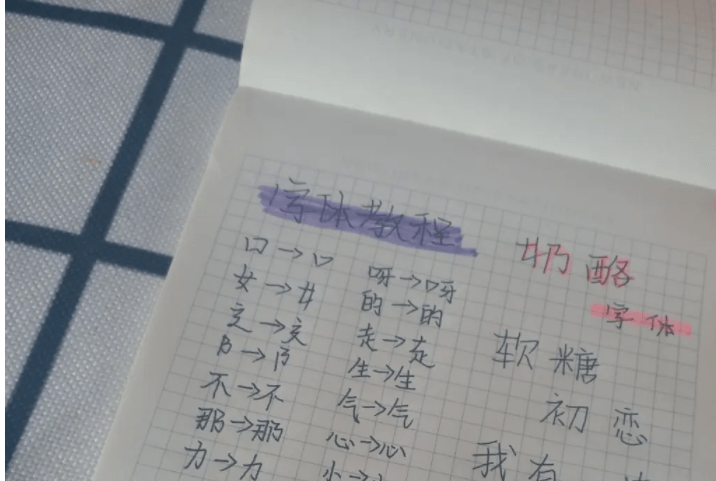 字体教程
口→口
女→女
交→交
阝→阝
不→不
那→那
力→力
呀→呀
的→的
走→走
生→生
气→气
心→心
小→
奶酪
字体
软糖
初恋
我有